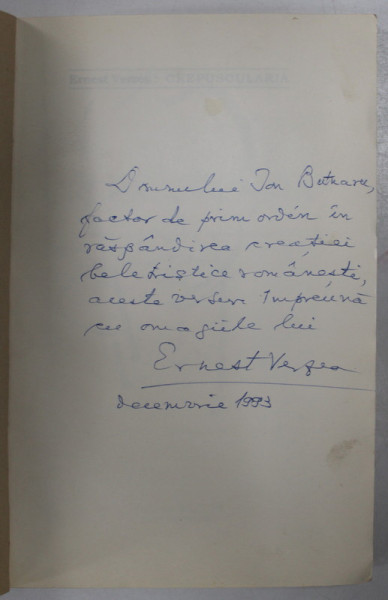 Domnului Ion Butnaru,
factor de prim ordin în
răspândirea creației
beletristice românești,
aceste versuri împreună
cu omagiile lui
Ernest Verzea
decembrie 1993